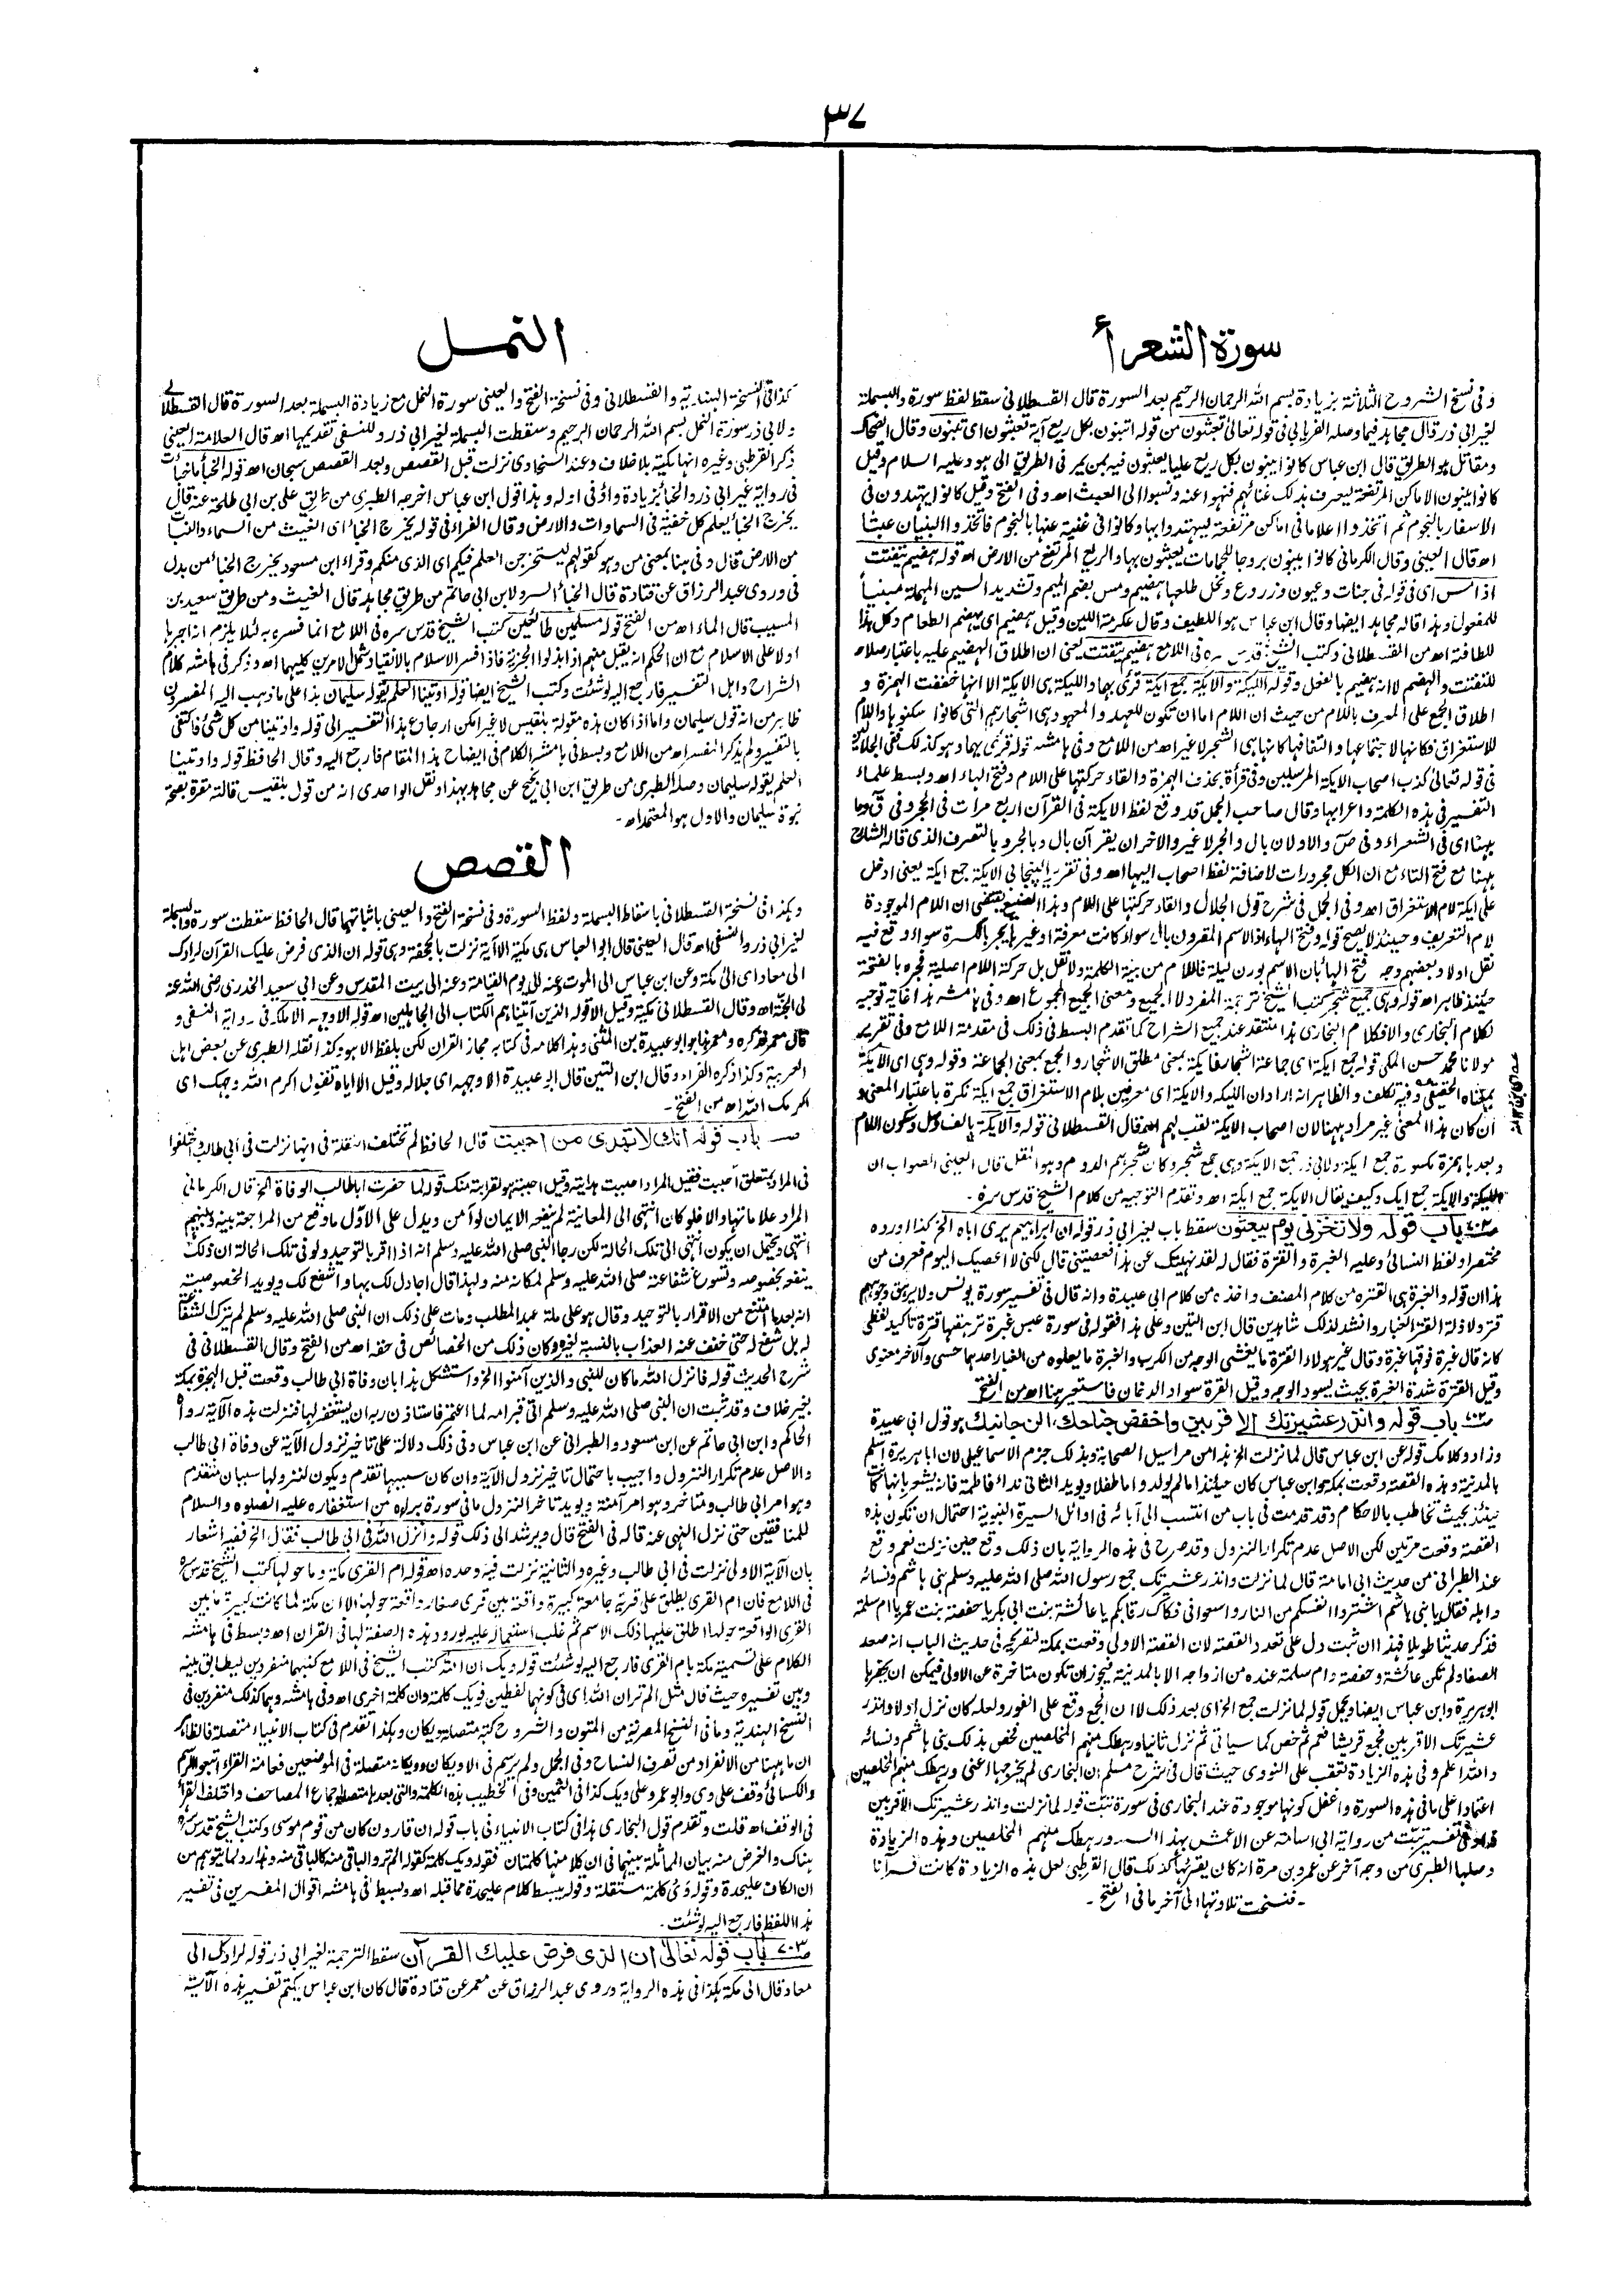 ٣٧
سورة الشعرأء
وفى نسخ الشروح الثلاثة بزيادة بسم الله الرحمان الرحيم بعد السورة قال القسطلانى سقط لفظ سورة والبسملة
لغير ابى ذر قال مجاهد فيما وصله الفريابى فى قوله تعالى تعبثون من قوله اتبنون بكل ريع آية تعبثون اى تبنون وقال الضحاك
ومقاتل هو الطريق قال ابن عباس كانوا يبنون بكل ريع علما يعبثون فيه بمن يمر فى الطريق الى هود عليه السلام وقيل
كانوا يبنون الاماكن المرتفعة ليعرف بذلك غنائهم فنهوا عنه ونسبوا الى العبث اه وفى الفتح وقيل كانوا يهتدون فى
الاسفار بالنجوم ثم اتخذوا اعلاما فى اماكن مرتفعة ليهتدوا بها وكانوا فى غنية عنها بالنجوم فاتخذوا البنيان عبثا
اه قال العينى وقال الكرمانى كانوا يبنون بروجا للحمامات يعبثون بها والريع المرتفع من الارض اه قوله هضيم يتفتت
اذا مس اى فى قوله فى جنات وعيون وزروع ونخل طلعها هضيم ومس بضم الميم وتشديد السين المهملة مبنيا
للمفعول وهذا قاله مجاهد ايضا وقال ابن عباس هو اللطيف وقال عكرمة اللين وقيل هضيم اى يهضم الطعام وكل هذا
للطافته اه من القسطلانى وكتب الشيخ قدس سره فى اللامع هضيم يتفتت يعنى ان اطلاق الهضيم عليه باعتبار صلاحه
للتفتت والهضم لا انه هضيم بالفعل وقوله الليكة والايكة جمع ايكة قرئ بهما والليكة هى الايكة الا انها خففت الهمزة و
اطلاق الجمع على المعرف باللام من حيث ان اللام اما ان تكون للعهد والمعهود هى اشجارهم التى كانوا سكنوها واللام
للاستغراق فكانها لاجتماعها والتفافها كانها هى الشجر لا غير اه من اللامع وفى هامشه قوله قرئ بهما وهو كذلك ففى الجلالين
فى قوله تعالى كذب اصحاب الايكة المرسلين وفى قرأة بحذف الهمزة والقاء حركتها على اللام وفتح الهاء اه وبسط علماء
التفسير فى هذه الكلمة واعرابها وقال صاحب الجمل قد وقع لفظ الايكة فى القرآن اربع مرات فى الحجر وفى ق وما
ههنا اى فى الشعراء وفى ص والاولان بال والجر لا غير والاخران يقرآن بال وبالجر وبالتصرف الذى قاله الشارح
ههنا مع فتح التاء مع ان الكل مجرورات لاضافة لفظ اصحاب اليها اه وفى تقرير الپنجابى الايكة جمع ايكة يعنى ادخل
على ايكة لام الاستغراق اه وفى الجمل فى شرح قول الجلال والقاء حركتها على اللام وهذا الصنيع يقتضى ان اللام الموجودة
لام التعريف وحينئذ لا يصح قوله وفتح الهاء اذ الاسم المقرون بال سواء كانت معرفة او غيرها يجر بالكسرة سواء وقع فيه
نقل اولا وبعضهم وجه فتح الهاء بان الاسم بوزن ليلة فاللام من بنية الكلمة ولا نقل بل حركة اللام اصلية فجره بالفتحة
حينئذ ظاهر اه قوله وهى جميع شجر كتب الشيخ ترجمة المفرد لا الجميع ومعنى الجميع المجموع اه وفى هامشه هذا غاية توجيه
لكلام البخارى والا فكلام البخارى هذا منتقد عند جميع الشراح كما تقدم البسط فى ذلك فى مقدمة اللامع وفى تقرير
مولانا محمد حسن المكى قوله جمع ايكة اى جماعة اشجار فايكة بمعنى مطلق الاشجار والجمع بمعنى الجماعة وقوله وهى اى الايكة
بمعناه الحقيقى وفيه تكلف والظاهر انه اراد ان الليكة والايكة اى معرفين بلام الاستغراق جمع ايكة نكرة باعتبار المعنى و
ان كان هذا المعنى غير مراد ههنا لان اصحاب الايكة لقب لهم اه قال القسطلانى قوله والايكة بالف وصل وسكون اللام
وبعدها همزة مكسورة جمع ايكة ولابى ذر جمع الايكة وهى جمع شجر وكان شجرهم الدوم وهو المقل قال العينى الصواب ان
الليكة والايكة جمع ايك وكيف يقال الايكة جمع ايكة اه وتقدم التوجيه من كلام الشيخ قدس سره -
ص٧٠٢ باب قوله ولا تخزنى يوم يبعثون سقط باب لغير ابى ذر قوله ان ابراهيم يرى اباه الخ كذا اورده
مختصرا ولفظ النسائى وعليه الغبرة والقترة فقال له لقد نهيتك عن هذا فعصيتنى قال لكنى لا اعصيك اليوم فعرف من
هذا ان قوله والغبرة هى القترة من كلام المصنف واخذه من كلام ابى عبيدة وانه قال فى تفسير سورة يونس ولا يرهق وجوههم
قتر ولا ذلة القتر الغبار وانشد لذلك شاهدين قال ابن التين وعلى هذا فقوله فى سورة عبس غبرة ترهقها قترة تاكيد لفظى
كانه قال غبرة فوقها غبرة وقال غير هولاء القترة ما يغشى الوجه من الكرب والغبرة ما يعلوه من الغبار احدهما حسى والآخر معنوى
وقيل القترة شدة الغبرة بحيث يسود الوجه وقيل القترة سواد الدخان فاستعير ههنا اه من الفتح
ص٧٠٢ باب قوله وانذر عشيرتك الاقربين واخفض جناحك، الن جانبك هو قول ابى عبيدة
وزاد وكلامك قوله عن ابن عباس قال لما نزلت الخ هذا من مراسيل الصحابة وبذلك جزم الاسماعيلى لان ابا هريرة اسلم
بالمدينة وهذه القصة وقعت بمكة وابن عباس كان حينئذ اما لم يولد واما طفلا ويويد الثانى نداء فاطمة فانه يشعر بانها كانت
حينئذ بحيث تخاطب بالاحكام وقد قدمت فى باب من انتسب الى آبائه فى اوائل السيرة النبوية احتمال ان تكون هذه
القصة وقعت مرتين لكن الاصل عدم تكرار النزول وقد صرح فى هذه الرواية بان ذلك وقع حين نزلت نعم وقع
عند الطبرانى من حديث ابى امامة قال لما نزلت وانذر عشيرتك جمع رسول الله صلى الله عليه وسلم بنى هاشم ونسائه
واهله فقال يا بنى هاشم اشتروا انفسكم من النار واسعوا فى فكاك رقابكم يا عائشة بنت ابى بكر يا حفصة بنت عمر يا ام سلمة
فذكر حديثا طويلا فهذا ان ثبت دل على تعدد القصة لان القصة الاولى وقعت بمكة لتصريحه فى حديث الباب انه صعد
الصفا ولم تكن عائشة وحفصة وام سلمة عنده من ازواجه الا بالمدينة فيجوز ان تكون متاخرة عن الاولى فيمكن ان يحضرها
ابوهريرة وابن عباس ايضا ويحمل قوله لما نزلت جمع الخ اى بعد ذلك لا ان الجمع وقع على الفور ولعله كان نزل اولا وانذر
عشيرتك الاقربين فجمع قريشا فعم ثم خص كما سياتى ثم نزل ثانيا ورهطك منهم المخلصين فخص بذلك بنى هاشم ونسائه
والله اعلم وفى هذه الزيادة تعقب على النووى حيث قال فى شرح مسلم ان البخارى لم يخرجها اعنى ورهطك منهم المخلصين
اعتمادا على ما فى هذه السورة واغفل كونها موجودة عند البخارى فى سورة تبت قوله لما نزلت وانذر عشيرتك الاقربين
زاد فى تفسير تبت من رواية ابى اسامة عن الاعمش بهذا السند ورهطك منهم المخلصين وهذه الزيادة
وصلها الطبرى من وجه آخر عن عمرو بن مرة انه كان يقرئها كذلك قال القرطبى لعل هذه الزيادة كانت قرآنا
- فنسخت تلاوتها الى آخر ما فى الفتح -
النمل
كذا فى النسخة الهندية والقسطلانى وفى نسخة الفتح والعينى سورة النمل مع زيادة البسملة بعد السورة قال القسطلانى
ولابى ذر سورة النمل بسم الله الرحمان الرحيم وسقطت البسملة لغير ابى ذر وللنسفى تقديمها اه قال العلامة العينى
ذكر القرطبى وغيره انها مكية بلا خلاف وعند السخاوى نزلت قبل القصص وبعد القصص سبحان اه قوله الخبأ ما خبأت
فى رواية غير ابى ذر والخبأ بزيادة واو فى اوله وهذا قول ابن عباس اخرجه الطبرى من طريق على بن ابى طلحة عنه قال
يخرج الخبأ يعلم كل خفية فى السماوات والارض وقال الفراء فى قوله يخرج الخبأ اى الغيث من السماء والنبات
من الارض قال وفى هنا بمعنى من وهو كقولهم ليستخرجن العلم فيكم اى الذى منكم وقرأء ابن مسعود يخرج الخبأ من بدل
فى وروى عبد الرزاق عن قتادة قال الخبأ السر ولابن ابى حاتم من طريق مجاهد قال الغيث ومن طريق سعيد بن
المسيب قال الماء اه من الفتح قوله مسلمين طائعين كتب الشيخ قدس سره فى اللامع انما فسره به لئلا يلزم انه اجبرها
اولا على الاسلام مع ان الحكم انه يقبل منهم اذا بذلوا الجزية فاذا فسر الاسلام بالانقياد شمل الامرين كليهما اه وذكر فى هامشه كلام
الشراح واهل التفسير فارجع اليه لو شئت وكتب الشيخ ايضا قوله اوتينا العلم يقوله سليمان هذا على ما ذهب اليه المفسرون
ظاهر من انه قول سليمان واما اذا كان هذه مقولة بلقيس لا غير امكن ارجاع هذا التفسير الى قوله واوتينا من كل شئ فاكتفى
بالتفسير ولم يذكر المفسر اه من اللامع وبسط فى هامشه الكلام فى ايضاح هذا المقام فارجع اليه وقال الحافظ قوله واوتينا
العلم يقوله سليمان وصله الطبرى من طريق ابن ابى نجيح عن مجاهد بهذا ونقل الواحدى انه من قول بلقيس قالته مقرة بصحة
نبوة سليمان والاول هو المعتمد اه -
القصص
وهكذا فى نسخة القسطلانى باسقاط البسملة ولفظ السورة وفى نسخة الفتح والعينى باثباتها قال الحافظ سقطت سورة والبسملة
لغير ابى ذر والنسفى اه قال العينى قال ابو العباس هى مكية الا آية نزلت بالجحفة وهى قوله ان الذى فرض عليك القرآن لرادك
الى معاد اى الى مكة وعن ابن عباس الى الموت وعنه الى يوم القيامة وعنه الى بيت المقدس وعن ابى سعيد الخدرى رضى الله عنه
الى الجنة اه وقال القسطلانى مكية وقيل الا قوله الذين آتيناهم الكتاب الى الجاهلين اه قوله الا وجهه الا ملكه فى رواية النسفى و
قال معمر فذكره ومعمر هذا هو ابو عبيدة بن المثنى وهذا كلامه فى كتابه مجاز القران لكن بلفظ الا هو وكذا نقله الطبرى عن بعض اهل
العربية وكذا ذكره الفراء وقال ابن التين قال ابو عبيدة الا وجهه اى جلاله وقيل الا اياه تقول اكرم الله وجهك اى
اكرمك الله اه من الفتح -
ص باب قوله انك لا تهدى من احببت قال الحافظ لم تختلف النقلة فى انها نزلت فى ابى طالب واختلفوا
فى المراد بمتعلق أحببت فقيل المراد احببت هدايته وقيل احببته هو لقرابته منك قوله لما حضرت ابا طالب الوفاة الخ قال الكرمانى
المراد علاماتها والا فلو كان انتهى الى المعاينة لم ينفعه الايمان لو آمن ويدل على الاول ما وقع من المراجعة بينه وبينهم
انتهى ويحتمل ان يكون انتهى الى تلك الحالة لكن رجا النبى صلى الله عليه وسلم انه اذا اقر بالتوحيد ولو فى تلك الحالة ان ذلك
ينفعه بخصوصه وتسوغ شفاعته صلى الله عليه وسلم لمكانه منه ولهذا قال اجادل لك بها واشفع لك ويويد الخصوصية
انه بعد ما امتنع من الاقرار بالتوحيد وقال هو على ملة عبد المطلب ومات على ذلك ان النبى صلى الله عليه وسلم لم يترك الشفاعة
له بل شفع له حتى خفف عنه العذاب بالنسبة لغيره وكان ذلك من الخصائص فى حقه اه من الفتح وقال القسطلانى فى
شرح الحديث قوله فانزل الله ما كان للنبى والذين آمنوا الخ واستشكل هذا بان وفاة ابى طالب وقعت قبل الهجرة بمكة
بغير خلاف وقد ثبت ان النبى صلى الله عليه وسلم اتى قبر امه لما اعتمر فاستاذن ربه ان يستغفر لها فنزلت هذه الآية رواه
الحاكم وابن ابى حاتم عن ابن مسعود والطبرانى عن ابن عباس وفى ذلك دلالة على تاخير نزول الآية عن وفاة ابى طالب
والاصل عدم تكرار النزول واجيب باحتمال تاخير نزول الآية وان كان سببها تقدم ويكون لنزولها سببان متقدم
وهو امر ابى طالب ومتاخر وهو امر آمنة ويويد تاخر النزول ما فى سورة براءة من استغفاره عليه الصلوة والسلام
للمنافقين حتى نزل النهى عنه قاله فى الفتح قال ويرشد الى ذلك قوله وانزل الله فى ابى طالب فقال الخ ففيه اشعار
بان الآية الاولى نزلت فى ابى طالب وغيره والثانية نزلت فيه وحده اه قوله ام القرى مكة وما حولها كتب الشيخ قدس سره
فى اللامع فان ام القرى يطلق على قرية جامعة كبيرة واقعة بين قرى صغار واقعة حولها الا ان مكة لما كانت كبيرة ما بين
القرى الواقعة حولها اطلق عليها ذلك الاسم ثم غلب استعماله عليه لورود هذه الصفة لها فى القران اه وبسط فى هامشه
الكلام على تسمية مكة بام القرى فارجع اليه لو شئت قوله ويك ان الله كتب الشيخ فى اللامع كتبهما منفردين ليطابق بينه
وبين تفسيره حيث قال مثل الم تر ان الله اى فى كونهما لفظين فويك كلمة وان كلمة اخرى اه وفى هامشه وهما كذلك منفردين فى
النسخ الهندية وما فى النسخ المصرية من المتون والشروح كتبه متصلة ويكان وهكذا تقدم فى كتاب الانبياء متصلة فالظاهر
ان ما ههنا من الانفراد من تصرف النساخ وفى الجمل ولم يرسم فى الا ويكان وويكانه متصلة فى الموضعين فعامة القراء اتبعوا الرسم
والكسائى وقف على وى وابو عمرو على ويك كذا فى السمين وفى الخطيب هذه الكلمة والتى بعدها متصلة باجماع المصاحف واختلف القراء
فى الوقف اه قلت وتقدم قول البخارى هذا فى كتاب الانبياء فى باب قوله ان قارون كان من قوم موسى وكتب الشيخ قدس سره
هناك والغرض منه بيان المماثلة بينهما فى ان كلا منهما كلمتان فقوله ويك كلمة كقوله الم تر والباقى منه كالباقى منه وهذا رد لما يتوهم من
ان الكاف عليحدة وقوله وى كلمة مستقلة وقوله يبسط كلام عليحدة مما قبله اه وبسط فى هامشه اقوال المفسرين فى تفسير
هذا اللفظ فارجع اليه لو شئت -
ص٧٠٣ باب قوله تعالى ان الذى فرض عليك القرآن سقط الترجمة لغير ابى ذر قوله لرادك الى
معاد قال الى مكة هكذا فى هذه الرواية وروى عبد الرزاق عن معمر عن قتادة قال كان ابن عباس يكتم تفسير هذه الآية